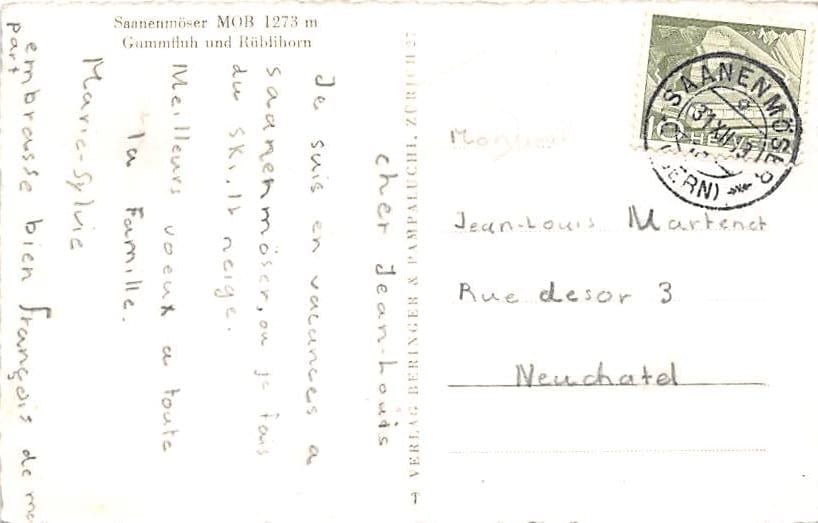 Saanenmöser MOB 1273 m
Gummfluh und Rüblihorn
cher Jean-Louis
Je suis en vacances a
saanenmöser, ou je fais
du ski. Il neige.
Meilleurs voeux a toute
la Famille.
Marie-Sylvie
embrasse bien François de ma
part
VERLAG BERINGER & PAMPALUCHI, ZÜRICH
SAANENMÖSER
(BERN)
10 HELVETIA
Jean-Louis Martenet
Rue desor 3
Neuchatel